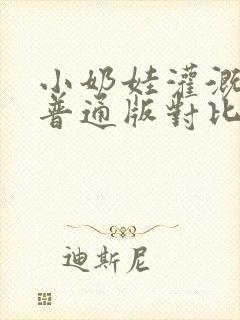 小奶娃灌溉
普通版對比
迪斯尼